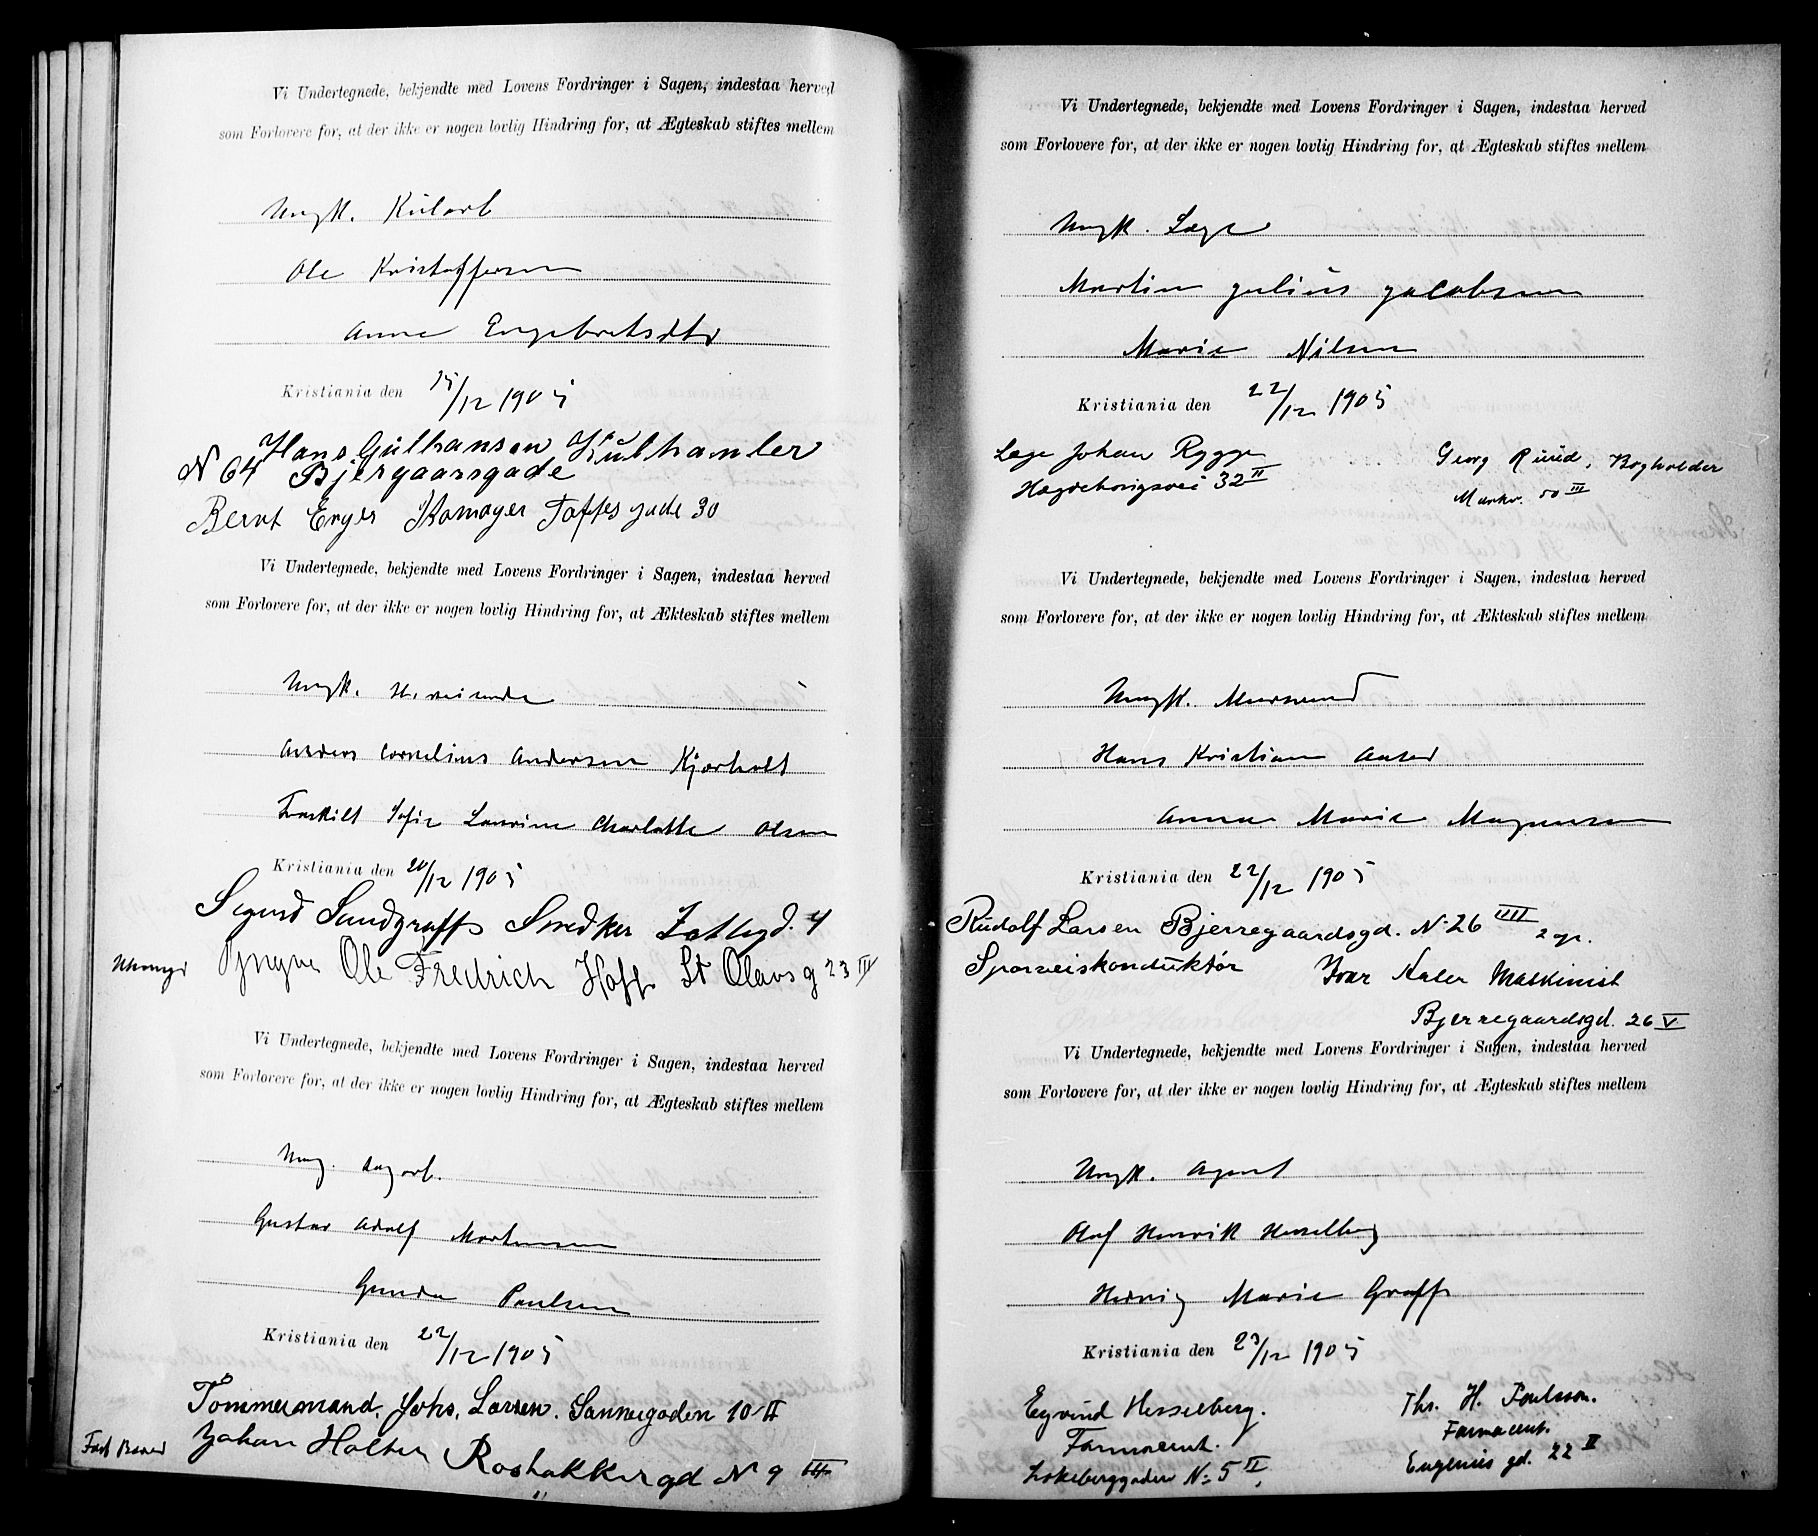 Vi Undertegnede, bekjendte med Lovens Fordringer i Sagen, indestaa herved
som Forlovere for, at der ikke er nogen lovlig Hindring for, at Ægteskab stiftes mellem
Ungk. Kularb
Ole Kristoffersen
Anne Engebretsdtr
Kristiania den 15/12 1905
Hans Gulhansen Kulhanler
N 64 Bjergaarsgade
Bernt Enger Skomager Toftes gade 30
Vi Undertegnede, bekjendte med Lovens Fordringer i Sagen, indestaa herved
som Forlovere for, at der ikke er nogen lovlig Hindring for, at Ækteskab stiftes mellem
Ungk.
Anders Cornelius Andersen Kjærholt
Fraskilt Sofie Laurine Charlotte Olsen
Kristiania den 20/12 1905
Sigurd Sundgraff Snedker 4
Yngvar Ole Fredrich Hoff St Olavs g 23 III
Vi Undertegnede, bekjendte med Lovens Fordringer i Sagen, indestaa herved
som Forlovere for, at der ikke er nogen lovlig Hindring for, at Ægteskab stiftes mellem
Ung. dagarb.
Gustav Adolf Mortensen
Gunda Paulsen
Kristiania den 22/12 1905
Tømmermand. Johs. Larsen. Sannergaden 10 II
Johan Holten Roshakkergd N 9 III
Vi Undertegnede, bekjendte med Lovens Fordringer i Sagen, indestaa herved
som Forlovere for, at der ikke er nogen lovlig Hindring for, at Ægteskab stiftes mellem
Ungk. Læge
Martin Julius Jacobsen
Marie Nilsen
Kristiania den 22/12 1905
Læge Johan Rygge Georg Ruud, Bogholder
Hægdehaugsvei 32 II Markv. 50 III
Vi Undertegnede, bekjendte med Lovens Fordringer i Sagen, indestaa herved
som Forlovere for, at der ikke er nogen lovlig Hindring for, at Ækteskab stiftes mellem
Ungk. Murmand
Hans Kristian Aaser
Anna Marie Magnussen
Kristiania den 22/12 1905
Rudolf Larsen Bjerregaardsgd. N. 26 IIII 2 op.
Sporveiskonduktør Ivar Aaler Maskinist
Bjerregaardsgd. 26 V
Vi Undertegnede, bekjendte med Lovens Fordringer i Sagen, indestaa herved
som Forlovere for, at der ikke er nogen lovlig Hindring for, at Ægteskab stiftes mellem
Ungk. Agent
Olaf Henrik Hesselberg
Hedvig Marie Graff
Kristiania den 23/12 1905
Eyvind Hesselberg. Ths. H. Paulsson.
Farmaceut. Farmaceut.
Løkeberggaden N: 5 II, Eugenies gd. 22 II